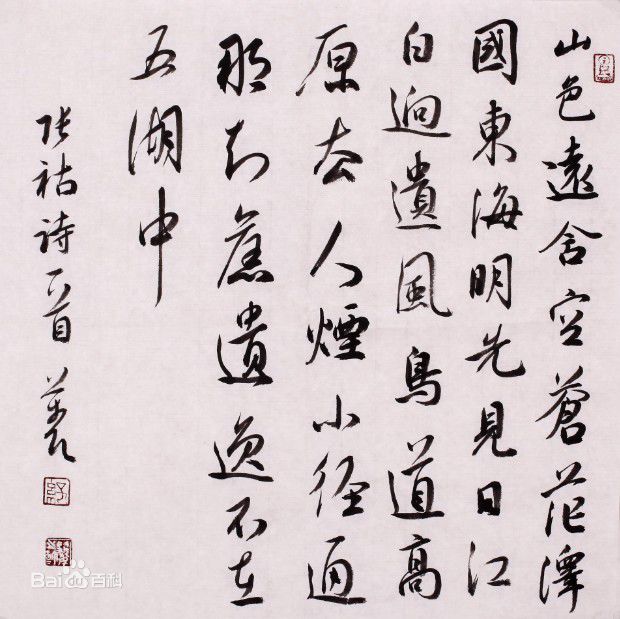 山色遠含空蒼茫澤
國東海明先見日江
白迥遺風鳥道高
原去人煙小徑通
那知舊遺逸不在
五湖中
张祜诗一首
Bai du 百科